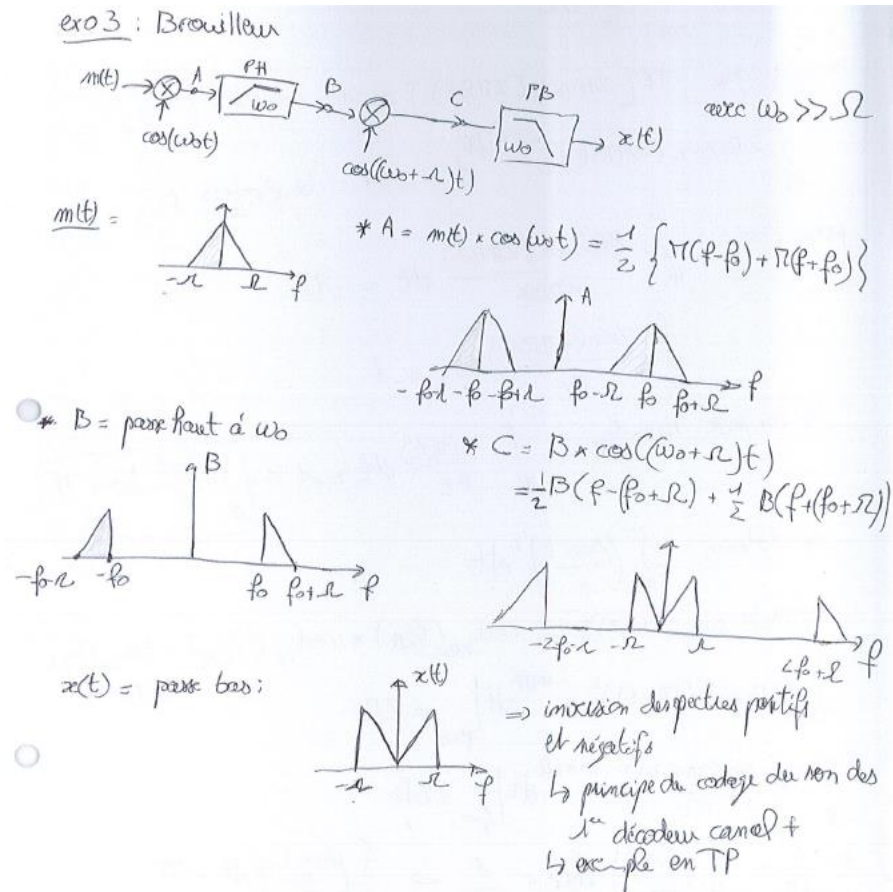 exo3 : Brouilleur
m(t) A PH ω₀ B C PB ω₀ x(t) avec ω₀ >> Ω
cos(ω₀t) cos((ω₀+Ω)t)
m(t) =
-Ω Ω f
* A = m(t) × cos(ω₀t) = 1/2 {M(f-f₀) + M(f+f₀)}
A
-f₀-Ω -f₀ -f₀+Ω f₀-Ω f₀ f₀+Ω f
* B = passe haut à ω₀
B
-f₀-Ω -f₀ f₀ f₀+Ω f
* C = B × cos((ω₀+Ω)t)
= 1/2 B(f-(f₀+Ω) + 1/2 B(f+(f₀+Ω))
-2f₀-Ω -Ω Ω 2f₀+Ω f
x(t) = passe bas :
x(t)
-Ω Ω f
⇒ inversion des spectres positifs
et négatifs
↳ principe du codage du son des
1er décodeur canal +
↳ exemple en TP